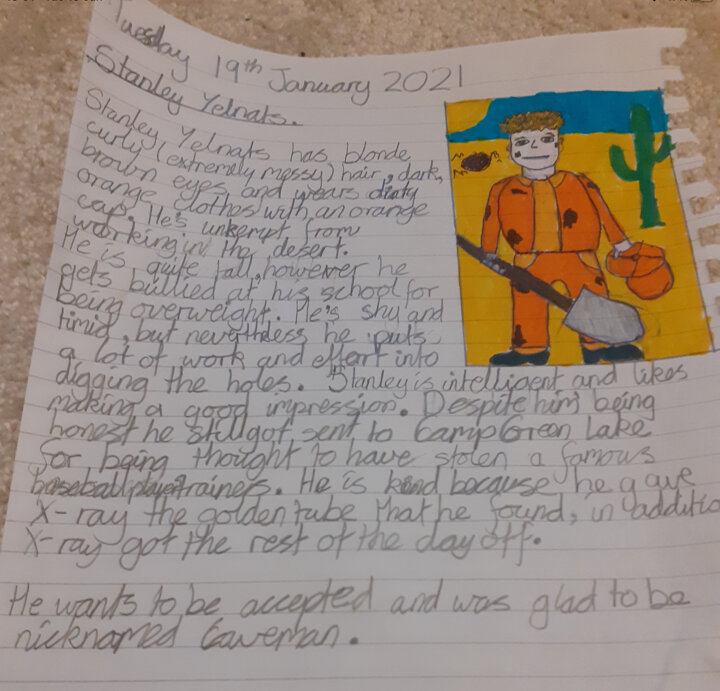 Tuesday 19th January 2021
Stanley Yelnats.
Stanley Yelnats has blonde
curly (extremely messy) hair, dark,
brown eyes and wears dirty
orange clothes with an orange
cap. He's unkempt from
working in the desert.
He is quite tall, however he
gets bullied at his school for
being overweight. He's shy and
timid, but nevrthless he puts
a lot of work and effort into
digging the holes. Stanley is intelligent and likes
making a good impression. Despite him being
honest he still got sent to Camp Green Lake
for being thought to have stolen a famous
baseball player trainers. He is kind because he gave
X-ray the golden tube that he found, in additio
X-ray got the rest of the day off.
He wants to be accepted and was glad to be
nicknamed Caveman.